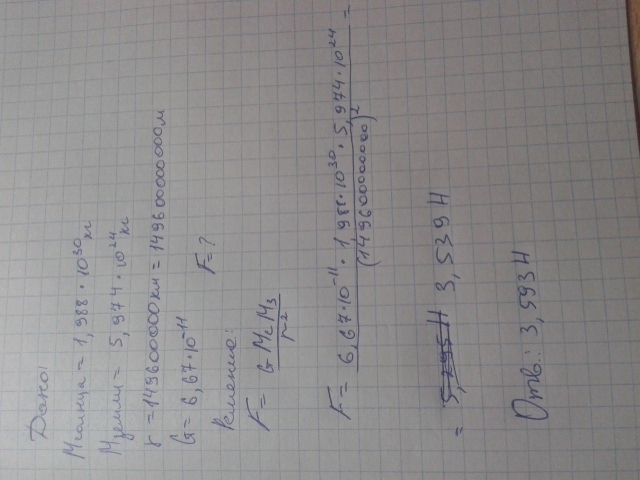 Дано:
Mсолнца = 1,988 · 10³⁰ кг
Mземли = 5,974 · 10²⁴ кг
r = 149600000 км = 149600000000 м
G = 6,67 · 10⁻¹¹
F = ?
Решение:
F = G Mс Mз / r²
F = 6,67 · 10⁻¹¹ · 1,988 · 10³⁰ · 5,974 · 10²⁴ / (149600000000)² =
= 3,539 Н
Отв.: 3,593 Н